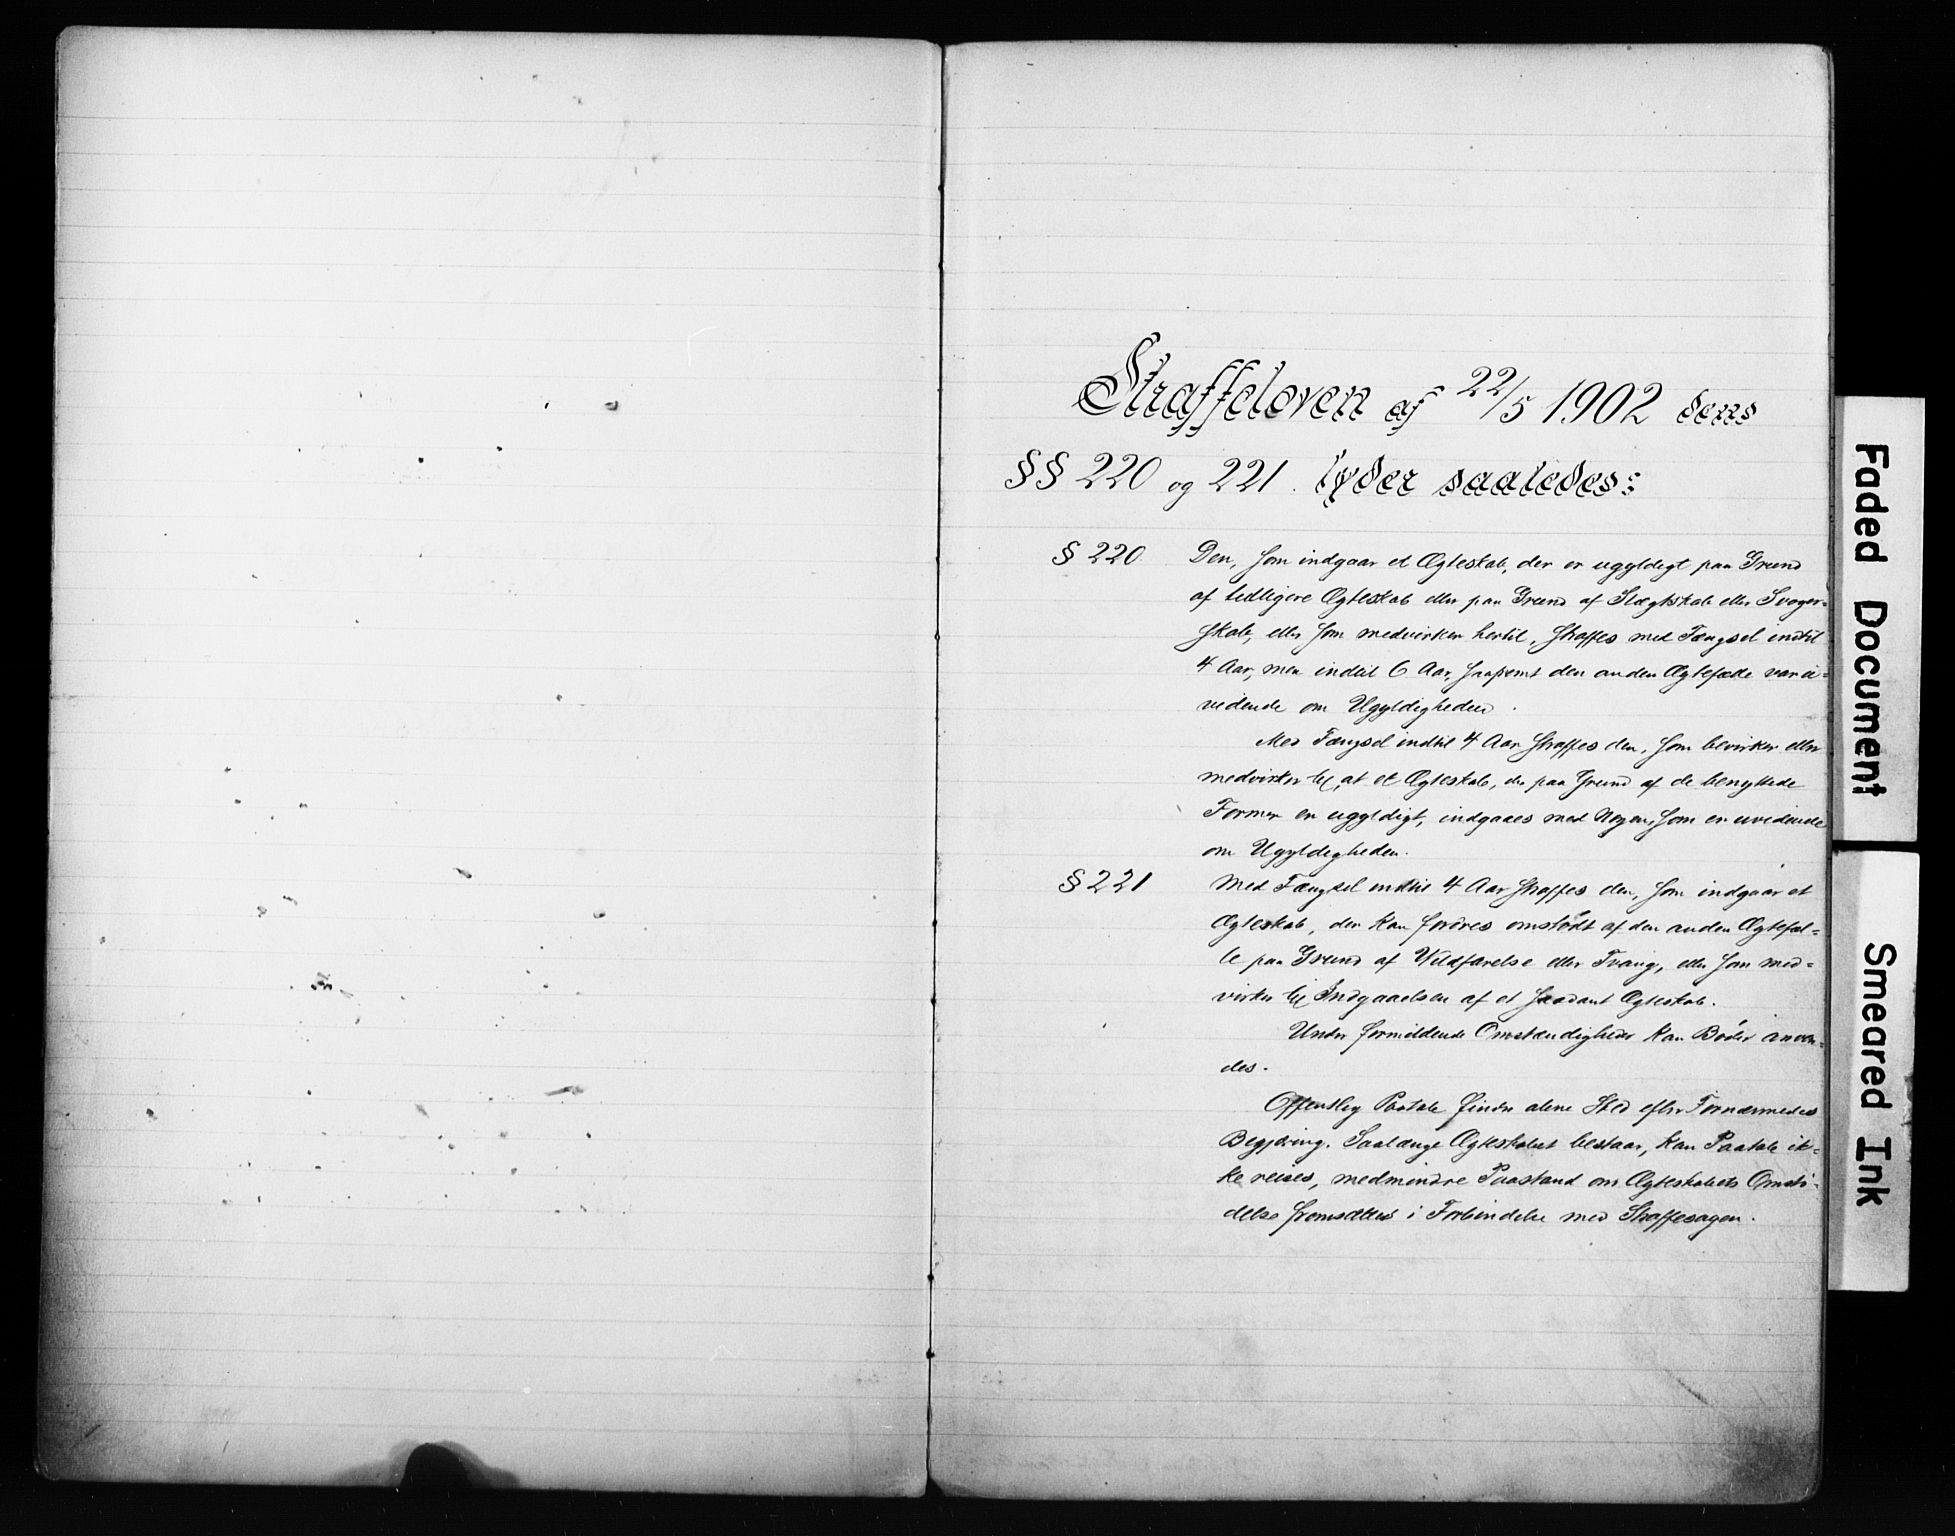 Straffeloven af 22/5 1902 dens
§§ 220 og 221. lyder saaledes:
§ 220 Den, som indgaar et Ægteskab, der er ugyldigt paa Grund
af tidligere Ægteskab eller paa Grund af Slægtskab eller Svoger=
skab, eller som medvirker hertil, straffes med Fængsel indtil
4 Aar, men indtil 6 Aar, saafremt den anden Ægtefælle var u=
vidende om Ugyldigheden.
Med Fængsel indtil 4 Aar straffes den, som bevirker eller
medvirker til, at et Ægteskab, der paa Grund af de benyttede
Former er ugyldigt, indgaaes med Nogen, som er uvidende
om Ugyldigheden.
§ 221 Med Fængsel indtil 4 Aar straffes den, som indgaar et
Ægteskab, der kan fordres omstødt af den anden Ægtefæl=
le paa Grund af Vildfarelse eller Tvang, eller som med=
virker til Indgaaelsen af et saadant Ægteskab.
Under formildende Omstændigheder kan Bøder anven=
des.
Offentlig Paatale finder alene Sted efter Fornærmedes
Begjæring. Saalænge Ægteskabet bestaar, kan Paatale ik=
ke reises, medmindre Paastand om Ægteskabets Omstø=
delse fremsættes i Forbindelse med Straffesagen.
Faded Document
Smeared Ink